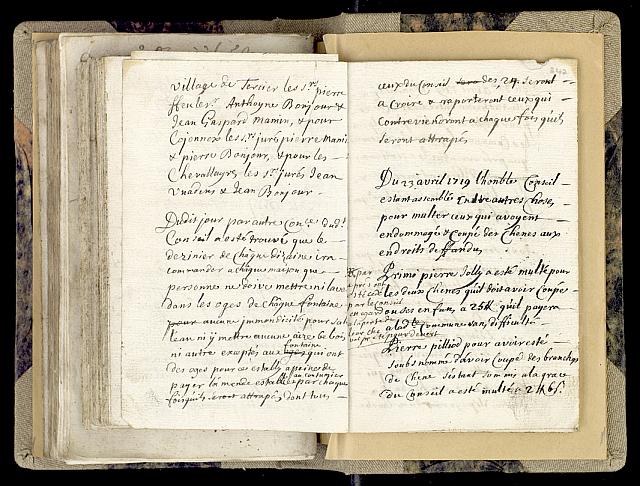 village de Tercier les s.rs pierre
Anthoyne Bonjour &
Jean Gaspard Mamin, & pour
Cojonnex les s.rs jurés pierre Mamin
& pierre Bonjour, & pour les
Chevallayres les s.rs jurés Jean
& Jean Bonjour
Dudit jour par autre Con.ce dud.t
Conseil a esté trouvé que le
dizenier de Châque dizaine ira
commander a châque maison que
personne ne doive mettre ni laver
dans les oges de châque fontaine
pour aucune immondicités pour
leau ni y mettre aucune de bois
ni autre exceptés aux fontaine qui ont
des oges pour ce establis a peine de
payer la mende establie par chaque
fois quils seront attrapés dont tous
ceux du Conseil des 24 seront
a Croire & raporteront ceux qui
Contreviendront a chaque fois quils
seront attrapés
Du 23 avril 1719 lhonble Conseil
estant assemblés Entre autres choses,
pour multer ceux qui avoyent
endommagé & Coupé des Chenes aux
endroits deffandus
Primo pierre Jolly a esté multé pour
les deux Chenes quil doit avoir Coupé
ou son fils, a 25 ff quil payera
a lad.te Commune sans difficulté
par
apres ont
esté cédé
par le Conseil
en
Pierre pilliod pour avoir esté
soubsonné davoir Coupé des branches
de Chene sestant sommis a la grace
du Conseil a esté multé a 2 ff 6 s.